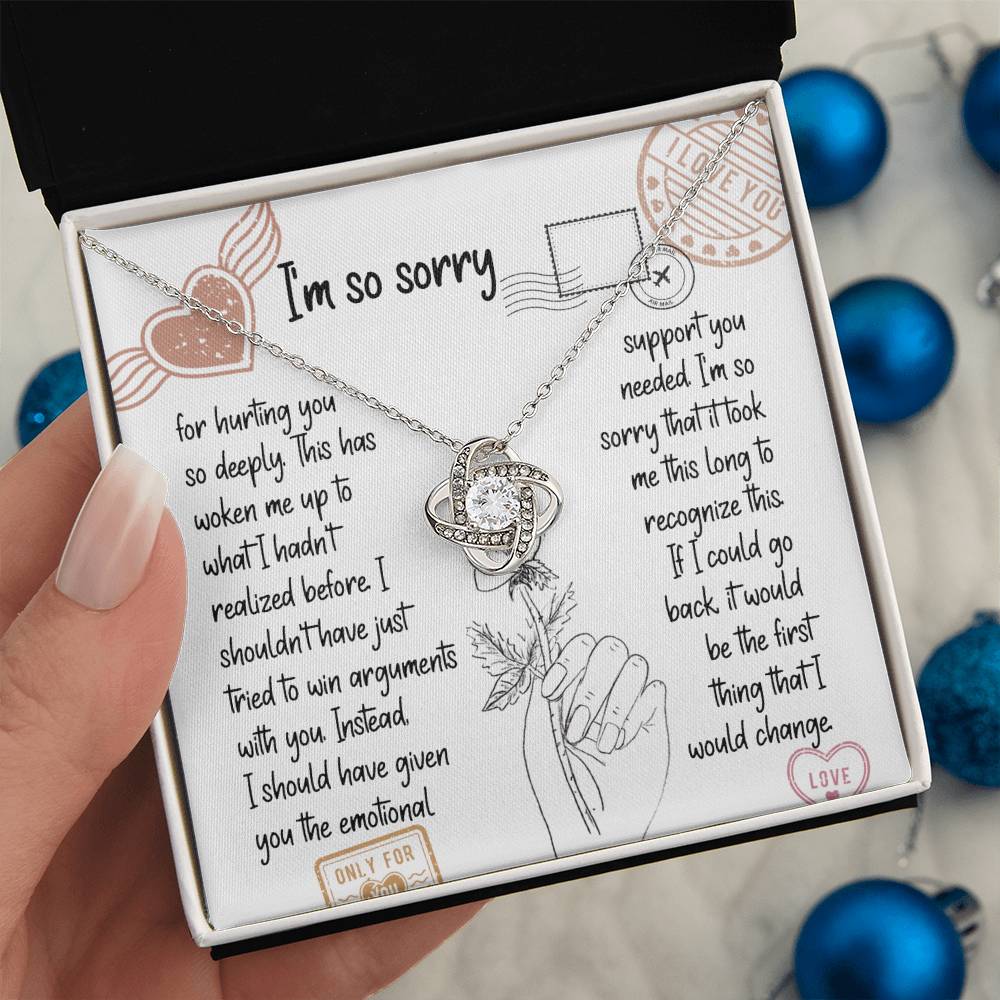 I'm so sorry
for hurting you
so deeply. This has
woken me up to
what I hadn't
realized before. I
shouldn't have just
tried to win arguments
with you. Instead,
I should have given
you the emotional
support you
needed. I'm so
sorry that it took
me this long to
recognize this.
If I could go
back, it would
be the first
thing that I
would change.
I LOVE YOU
AIR MAIL
AIR MAIL
LOVE
ONLY FOR
YOU